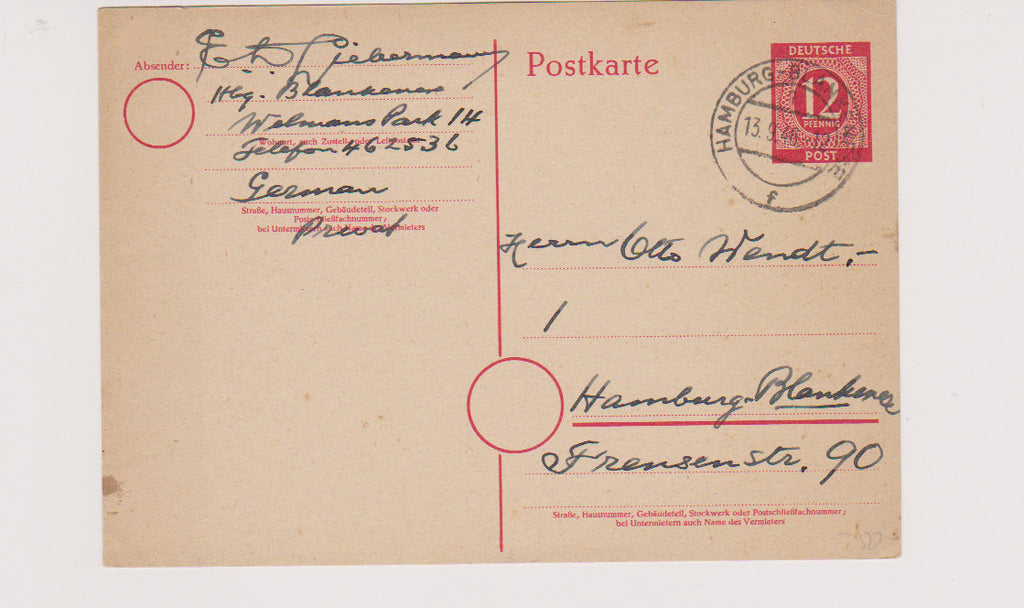 Absender:
Th. Liebermann
Hbg. Blankenese
Welmans Park 14
Wohnort, auch Zustell- oder Leitpostamt
Telefon 462536
German
Straße, Hausnummer, Gebäudeteil, Stockwerk oder
Postschließfachnummer;
bei Untermietern auch Name des Vermieters
Privat
Postkarte
DEUTSCHE
12
PFENNIG
POST
HAMBURG
13.9.46
f
Herrn Otto Wendt,-
1
Hamburg-Blankenese
Frensenstr. 90
Straße, Hausnummer, Gebäudeteil, Stockwerk oder Postschließfachnummer;
bei Untermietern auch Name des Vermieters